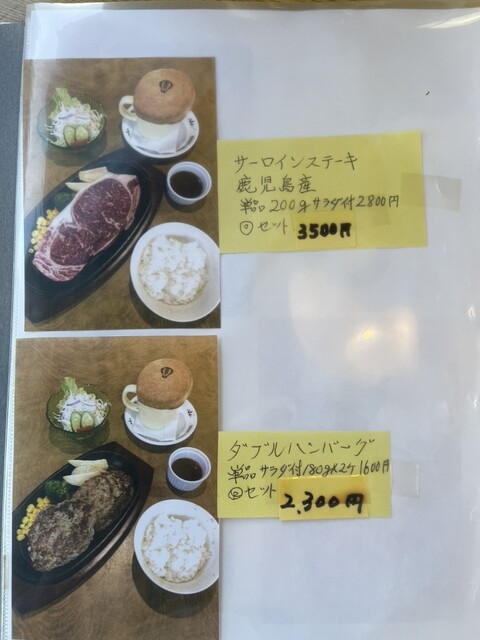 サーロインステーキ
鹿児島産
単品200gサラダ付2800円
◎セット 3500円
ダブルハンバーグ
単品 サラダ付180g×2ケ1600円
◎セット 2,300円